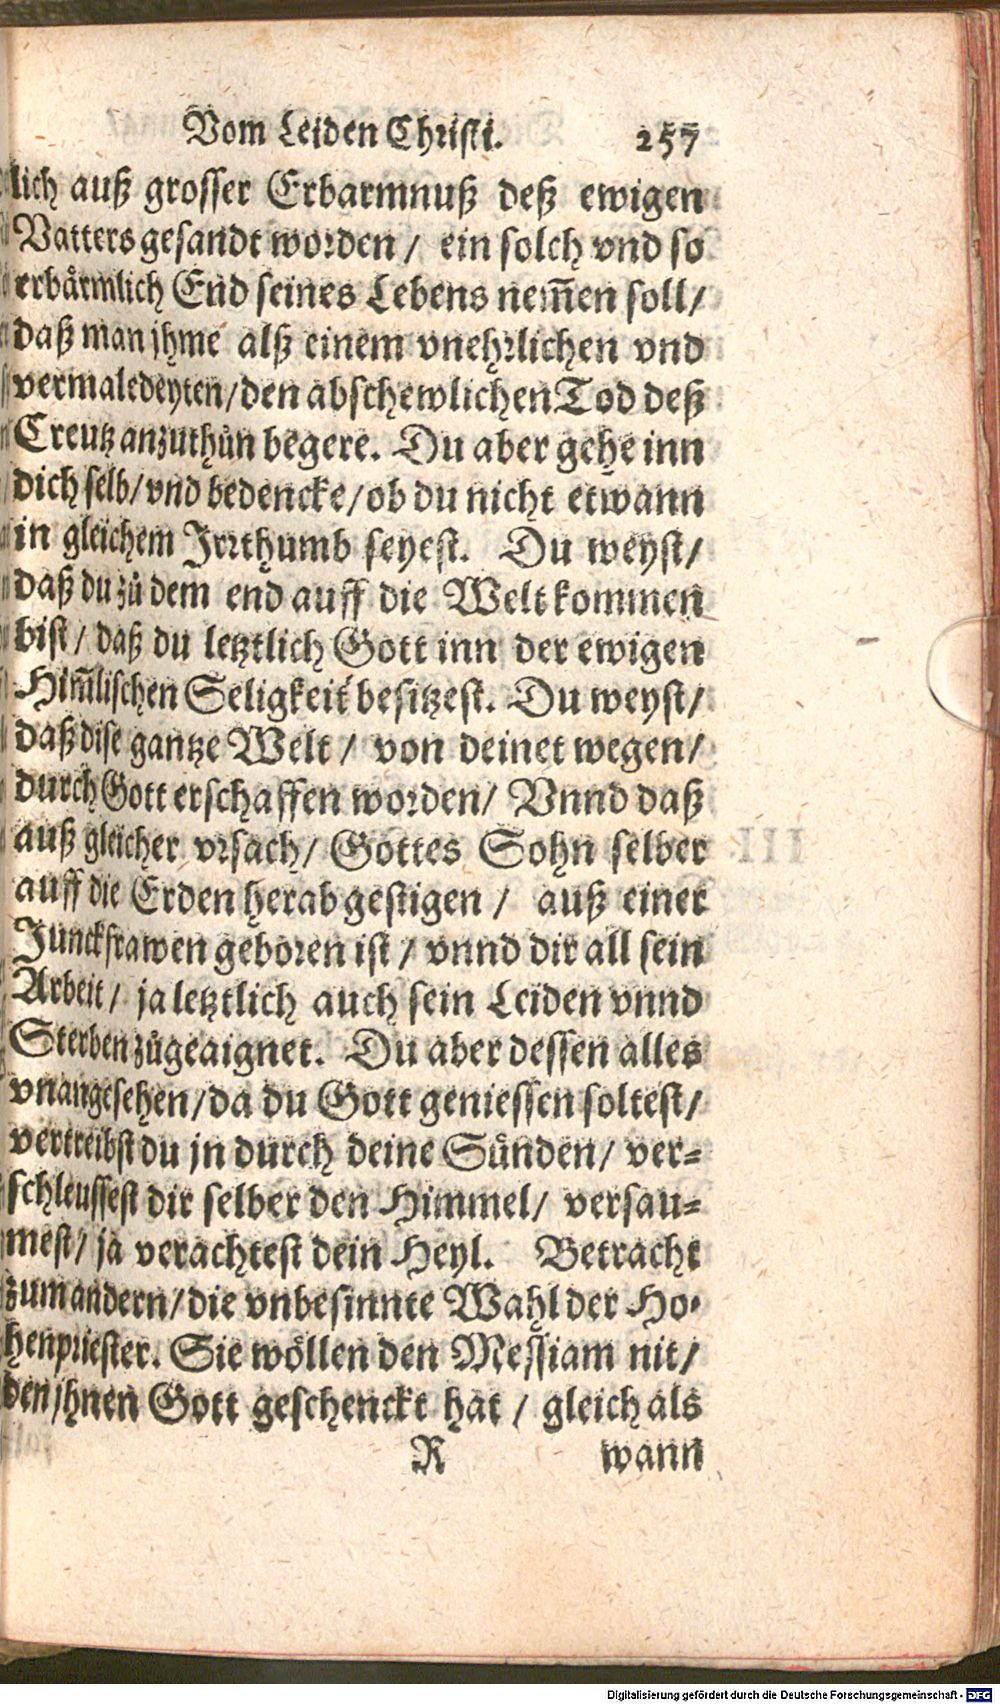 Vom Leiden Christi. 257
lich auß grosser Erbarmnuß deß ewigen
Vatters gesandt worden / ein solch vnd so
erbärmlich End seines Lebens nem̃en soll/
daß man jhme alß einem vnehrlichen vnd
vermaledeyten/den abschewlichen Tod deß
Creutz anzuthůn begere. Du aber gehe inn
dich selb/vnd bedencke/ob du nicht etwann
in gleichem Irrthumb seyest. Du weyst/
daß du zů dem end auff die Welt kommen
bist/ daß du letztlich Gott inn der ewigen
Him̃lischen Seligkeit besitzest. Du weyst/
daß dise gantze Welt / von deinet wegen/
durch Gott erschaffen worden/ Vnnd daß
auß gleicher vrsach/ Gottes Sohn selber
auff die Erden herab gestigen / auß einer
Junckfrawen geboren ist / vnnd dir all sein
Arbeit/ ja letztlich auch sein Leiden vnnd
Sterben zůgeaignet. Du aber dessen alles
vnangesehen/da du Gott geniessen soltest/
vertreibst du jn durch deine Sünden/ ver-
schleussest dir selber den Himmel/ versau-
mest/ ja verachtest dein Heyl. Betracht
zum andern/die vnbesinnte Wahl der Ho-
henpriester. Sie wöllen den Messiam nit/
den jhnen Gott geschenckt hat / gleich als
R wann
Digitalisierung gefördert durch die Deutsche Forschungsgemeinschaft - DFG